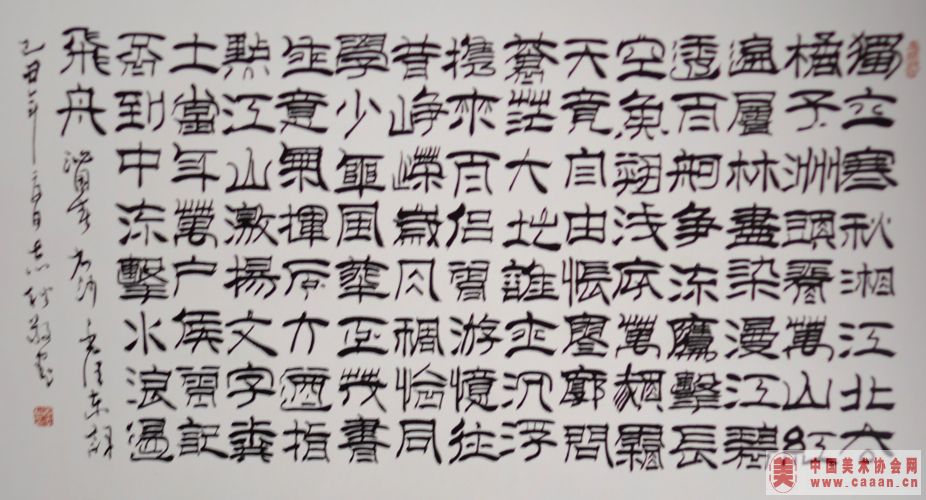 獨立寒秋湘江北去
橘子洲頭看萬山紅
遍層林盡染漫江碧
透百舸争流鷹擊長
空魚翔浅底萬類霜
天竟自由悵寥廓問
蒼茫大地誰主沉浮
攜來百侣曾游憶往
昔峥嶸歲月稠恰同
學少年風華正茂書
生意氣揮斥方遒指
點江山激揚文字糞
土當年萬户侯曾記
否到中流擊水浪遏
飛舟 沁園春 長沙 毛澤東詞
乙丑年
中国美术协会网
www.caaan.cn